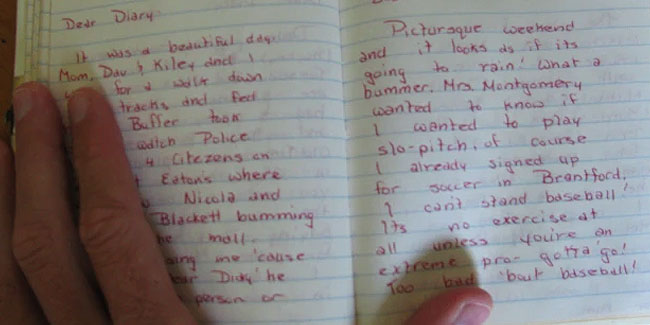 Dear Diary
It was a beautiful day.
Mom, Dav & Kiley and I
for a walk down
tracks and fed
Buffer took
watch Police
4 Citezens on
Eaton's where
Nicola and
Blackett bumming
he mall.
me 'cause
Diary he
person or
Picturesque weekend
and it looks as if its
going to rain! What a
bummer. Mrs. Montgomery
wanted to know if
I wanted to play
slo-pitch, of course
I already signed up
for soccer in Brantford.
I can't stand baseball!
Its no exercise at
all unless you're an
extreme pro- gotta go!
Too bad 'bout baseball!